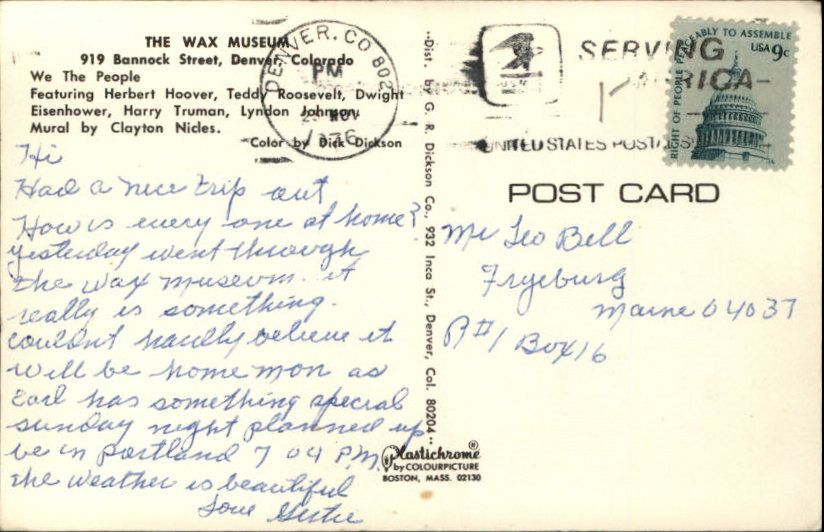 THE WAX MUSEUM
919 Bannock Street, Denver, Colorado
We The People
Featuring Herbert Hoover, Teddy Roosevelt, Dwight
Eisenhower, Harry Truman, Lyndon Johnson.
Mural by Clayton Nicles.
Color by Dick Dickson
Hi
Had a nice trip out
How is every one at home?
yesterday went through
the wax museum. it
really is something.
couldnt hardly believe it
will be home mon as
Earl has something special
sunday night planned up
be in Portland 7 04 P.M.
the weather is beautiful
Love Gertie
DENVER, CO 802
PM
NOV
1976
Dist. by G. R. Dickson Co., 932 Inca St., Denver, Col. 80204
Plastichrome®
by COLOURPICTURE
BOSTON, MASS. 02130
SERVING
AMERICA
UNITED STATES POSTAL
RIGHT OF PEOPLE PEACEABLY TO ASSEMBLE
USA 9c
POST CARD
Mr Leo Bell
Fryeburg
Maine 04037
R#1 Box 16